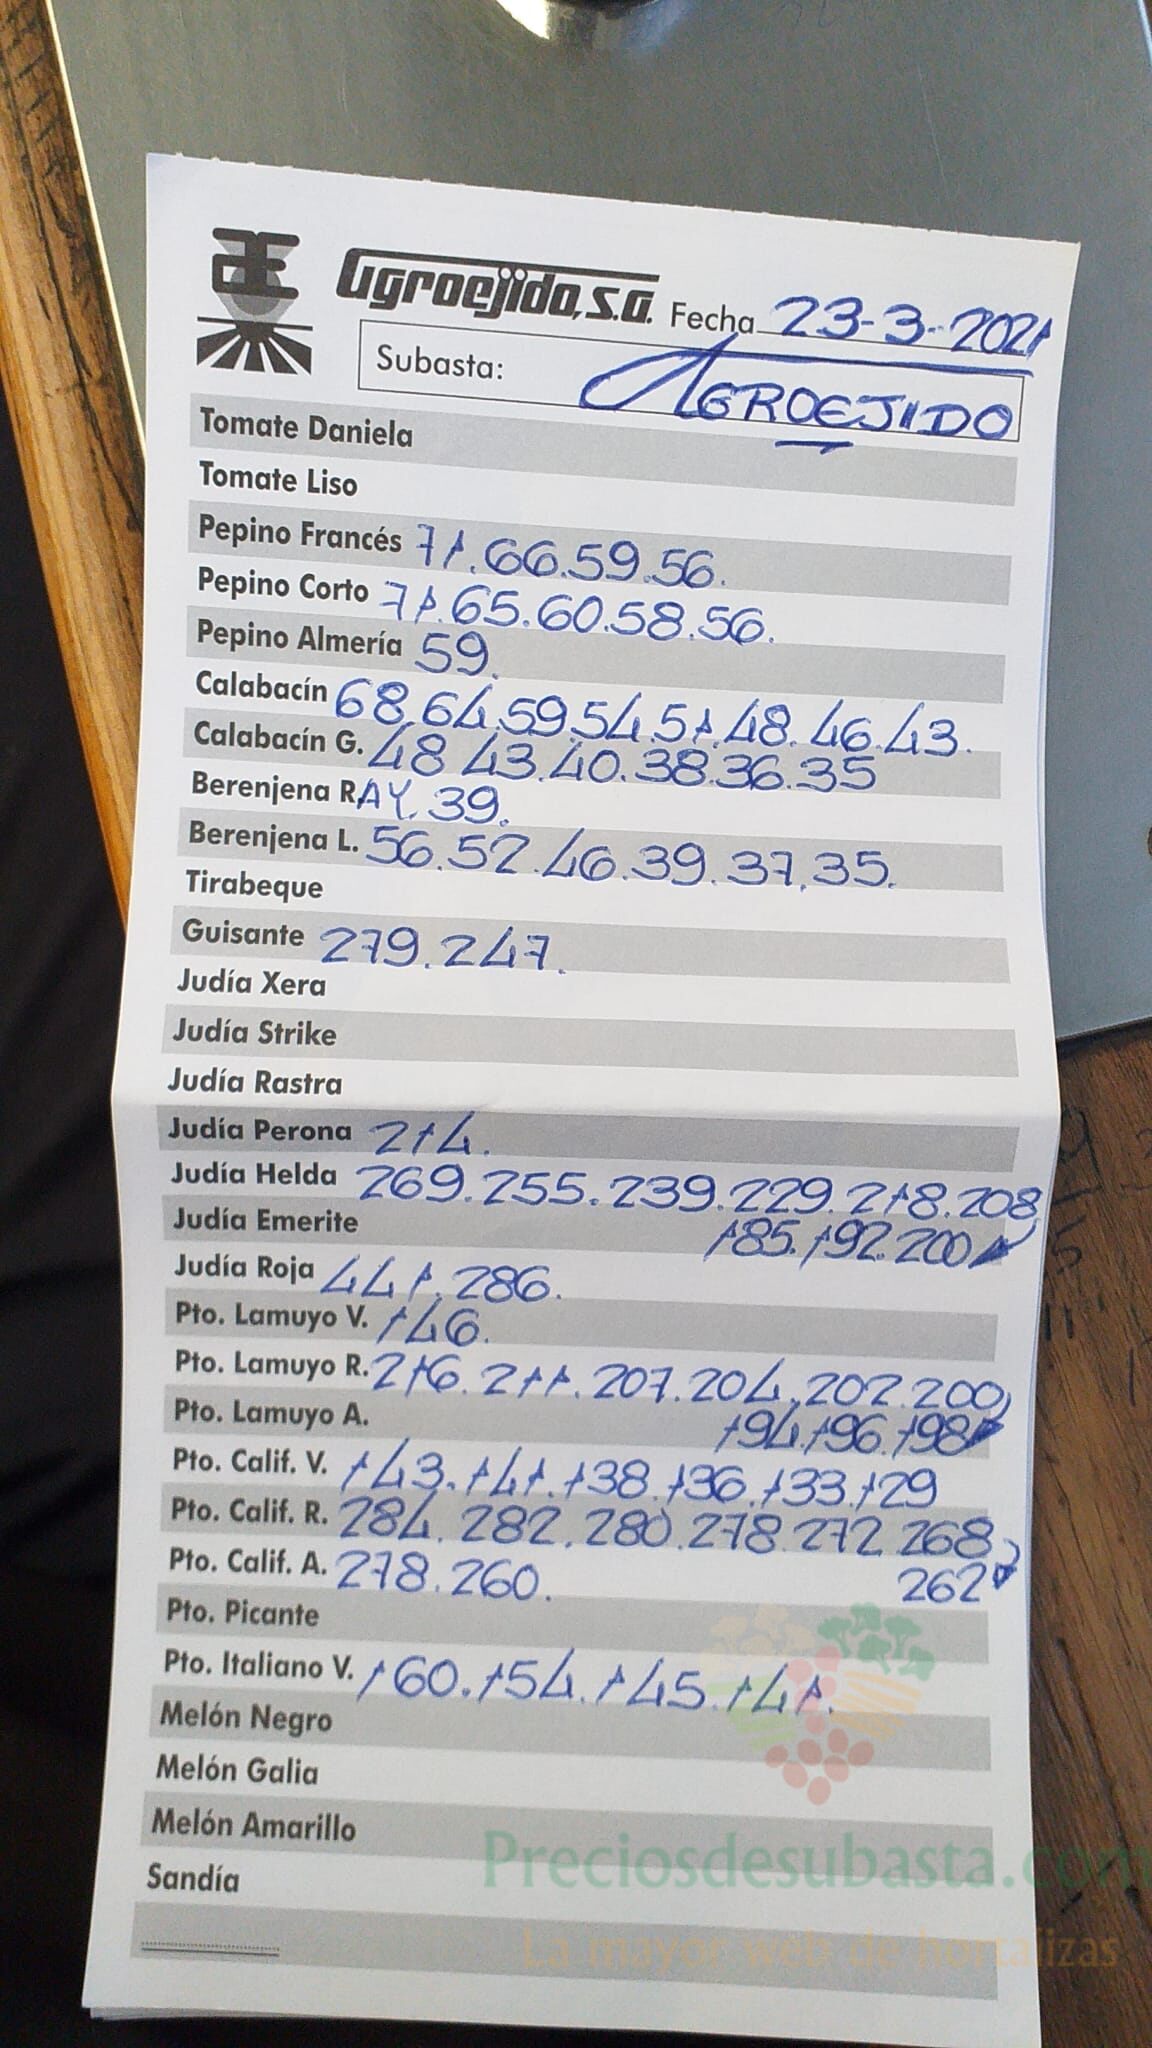 Agroejido, S.A. Fecha 23-3-2021
Subasta: AGROEJIDO
Tomate Daniela
Tomate Liso
Pepino Francés 71.66.59.56.
Pepino Corto 71.65.60.58.56.
Pepino Almería 59.
Calabacín 68.64.59.54.51.48.46.43.
Calabacín G. 48 43.40.38.36.35
Berenjena RAY. 39.
Berenjena L. 56.52.46.39.37.35.
Tirabeque
Guisante 279.247.
Judía Xera
Judía Strike
Judía Rastra
Judía Perona 214.
Judía Helda 269.255.239.229.218.208
Judía Emerite 185.192.200
Judía Roja 441.286.
Pto. Lamuyo V. 146.
Pto. Lamuyo R. 216.211.207.204.202.200
Pto. Lamuyo A. 194.196.198
Pto. Calif. V. 143.141.138.136.133.129
Pto. Calif. R. 284.282.280.278.272.268
Pto. Calif. A. 278.260. 262
Pto. Picante
Pto. Italiano V. 160.154.145.141.
Melón Negro
Melón Galia
Melón Amarillo
Preciosdesubasta.com
Sandía
La mayor web de hortalizas